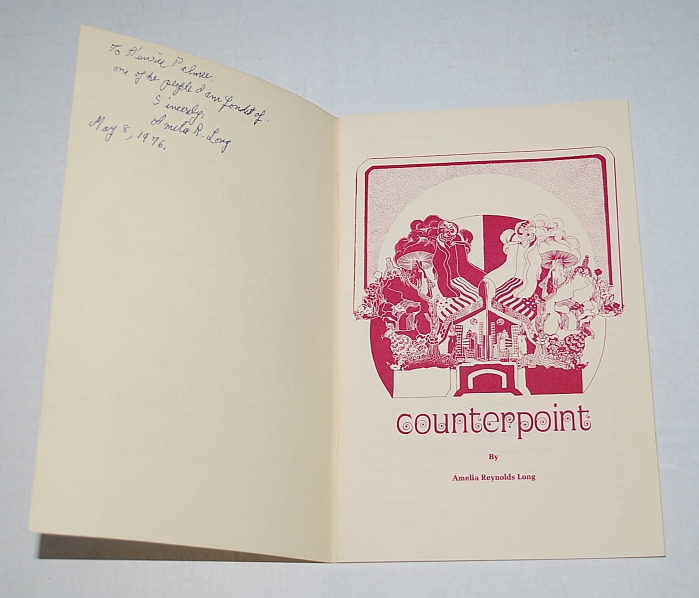 To Henrie Palmer,
one of the people I am fondest of.
Sincerely,
Amelia R. Long
May 8, 1976.
counterpoint
By
Amelia Reynolds Long